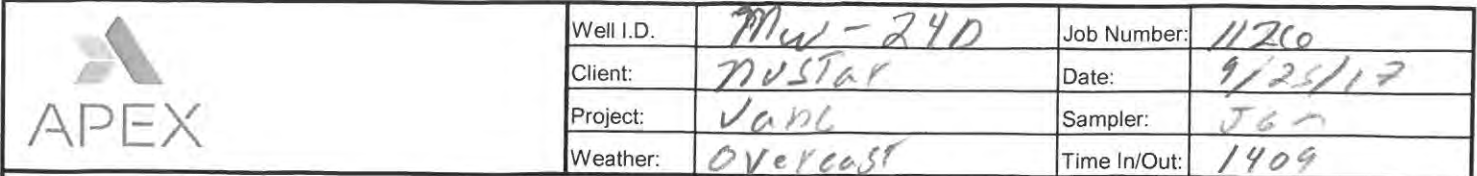 APEX
Well I.D. MW-24D Job Number: 1126
Client: NuStar Date: 9/25/17
Project: Vanc Sampler:
Weather: Overcast Time In/Out: 1409